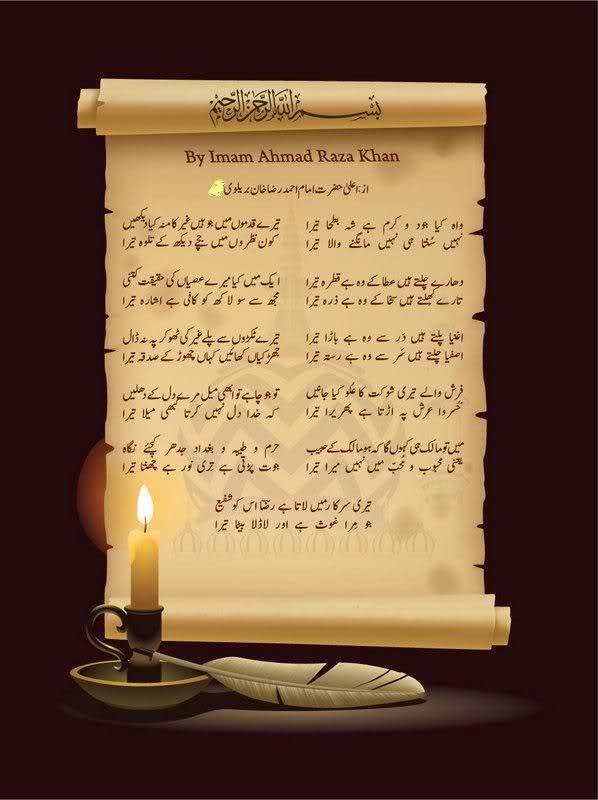 بسم الله الرحمن الرحيم
By Imam Ahmad Raza Khan
از: اعلیٰ حضرت امام احمد رضا خان بریلوی
واہ کیا جود و کرم ہے شہ بطحا تیرا
نہیں سُنتا ہی نہیں مانگنے والا تیرا
دھارے چلتے ہیں عطا کے وہ ہے قطرہ تیرا
تارے کھلتے ہیں سخا کے وہ ہے ذرہ تیرا
اغنیا پلتے ہیں دَر سے وہ ہے باڑا تیرا
اصفیا چلتے ہیں سَر سے وہ ہے رستہ تیرا
فرش والے تیری شوکت کا عُلو کیا جانیں
خسروا عرش پہ اڑتا ہے پھریرا تیرا
میں تو مالک ہی کہوں گا کہ ہو مالک کے حبیب
یعنی محبوب و محب میں نہیں میرا تیرا
تیرے قدموں میں جو ہیں غیر کا منہ کیا دیکھیں
کون نظروں میں جچے دیکھ کے تلوہ تیرا
ایک میں کیا میرے عصیاں کی حقیقت کتنی
مجھ سے سو لاکھ کو کافی ہے اشارہ تیرا
تیرے ٹکڑوں سے پلے غیر کی ٹھوکر پہ نہ ڈال
جھڑکیاں کھائیں کہاں چھوڑ کے صدقہ تیرا
تو جو چاہے تو ابھی میل مرے دل کے دھلیں
کہ خدا دل نہیں کرتا کبھی میلا تیرا
حرم و طیبہ و بغداد جدھر کیجئے نگاہ
جوت پڑتی ہے تِری نور ہے چھنتا تیرا
تیری سرکار میں لاتا ہے رضا اس کو شفیع
جو مِرا غوث ہے اور لاڈلا بیٹا تیرا